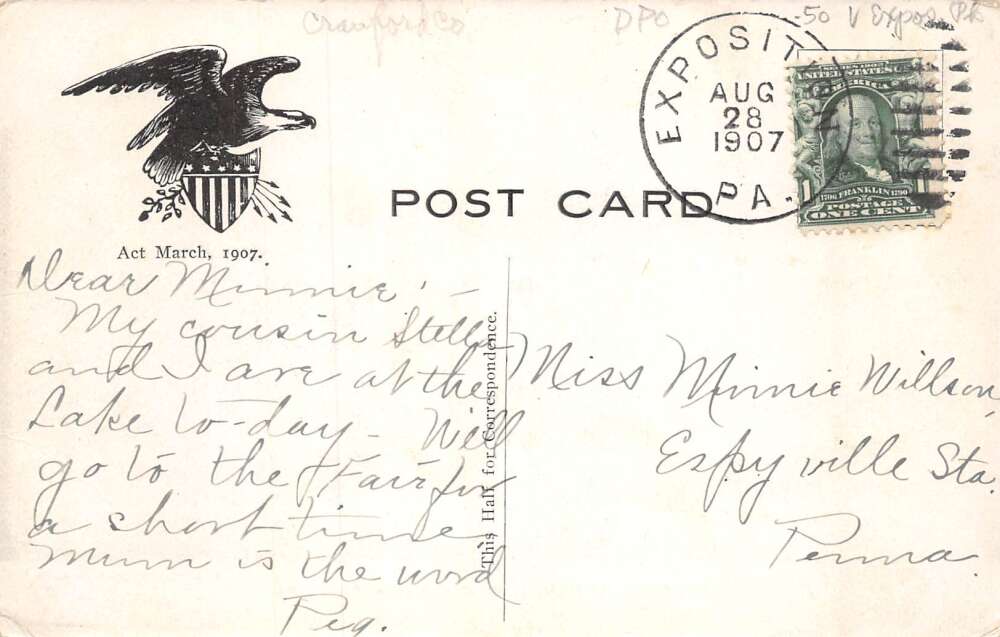 Crawford Co
DPO
.50 V Expos. Pk
EXPOSITION
AUG
28
1907
PA.
SERIES 1902
UNITED STATES OF AMERICA
1706 FRANKLIN 1790
POSTAGE
1 ONE CENT
POST CARD
Act March, 1907.
Dear Minnie! -
My cousin Stella
and I are at the
Lake to-day - Will
go to the Fair for
a short time
Mum is the word
Peg.
This Half for Correspondence.
Miss Minnie Willson,
Espyville Sta.
Penna.